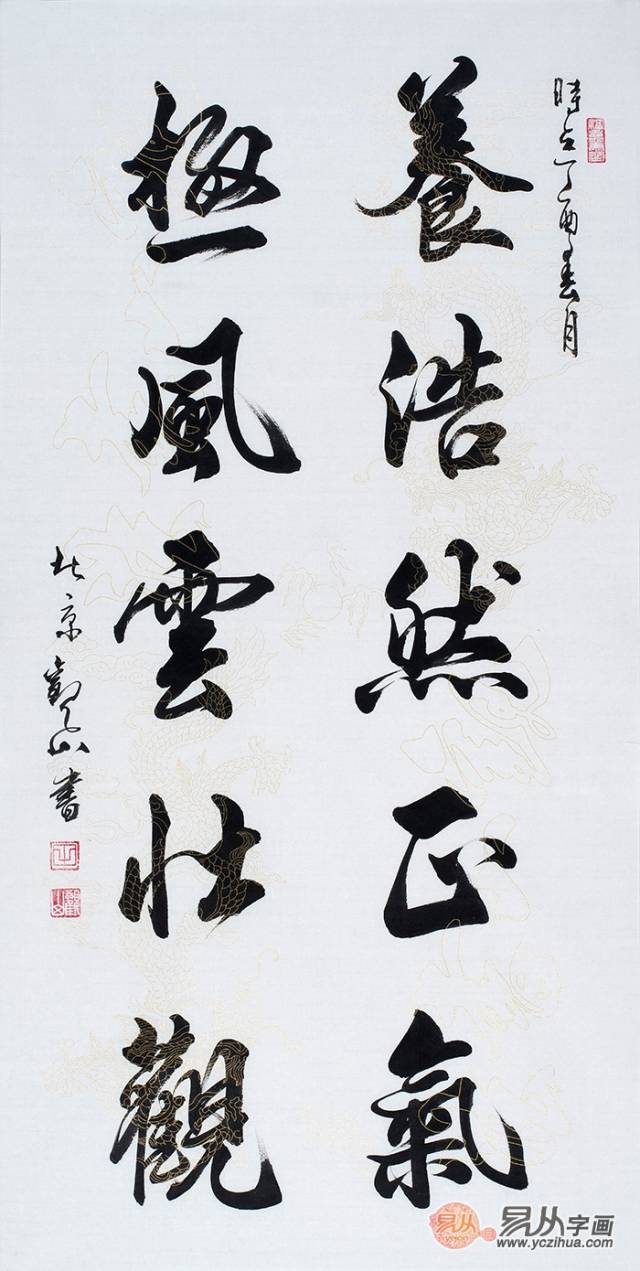 時在丁酉春月
養浩然正氣
極風雲壯觀
北京觀山書
易从
易从字画
www.yczihua.com